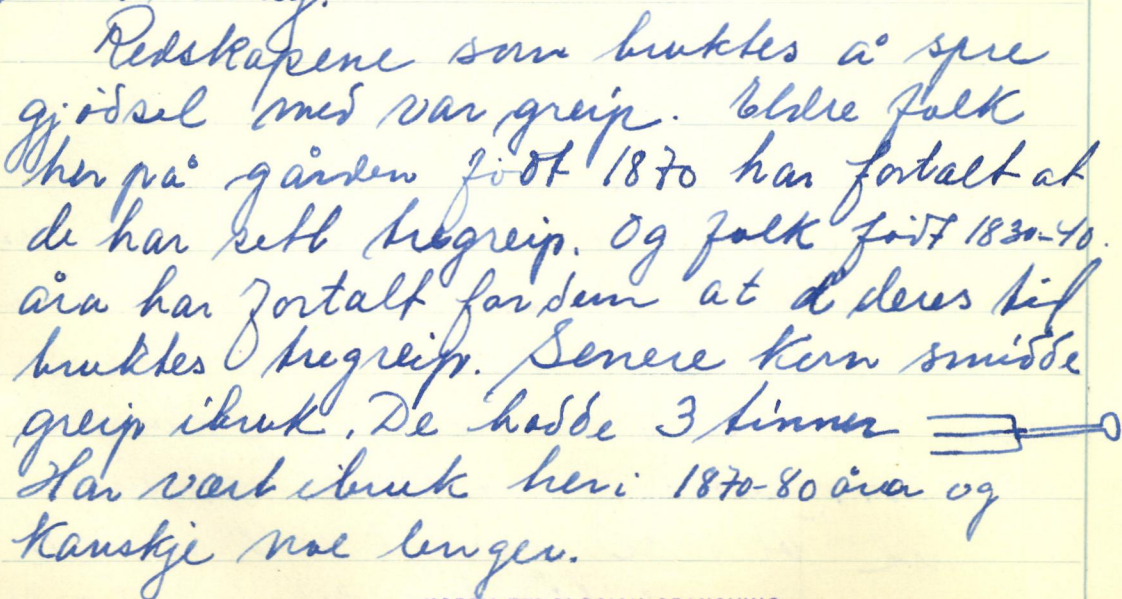 Redskapene som bruktes å spre
gjødsel med var greip. Eldre folk
her på gården født 1870 har fortalt at
de har sett tregreip. Og folk født 1830-40.
åra har fortalt for dem at deres tid
bruktes tregreip. Senere kom smidde
greip ibruk. De hadde 3 tinner
Har vært ibruk her i 1870-80 åra og
kanskje noe lenger.